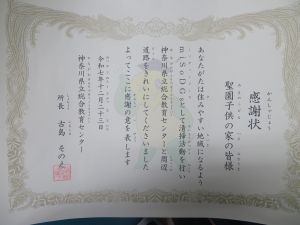 感謝状
かんしゃじょう
聖園子供の家の皆様
あなたがたは住みやすい地域になるよう
miSoDiGsとして清掃活動を行い
神奈川県立総合教育センターと周辺
道路をきれいにしてくださいました
よってここに感謝の意を表します
令和七年十二月二十三日
神奈川県立総合教育センター
所長 古島 そのえ